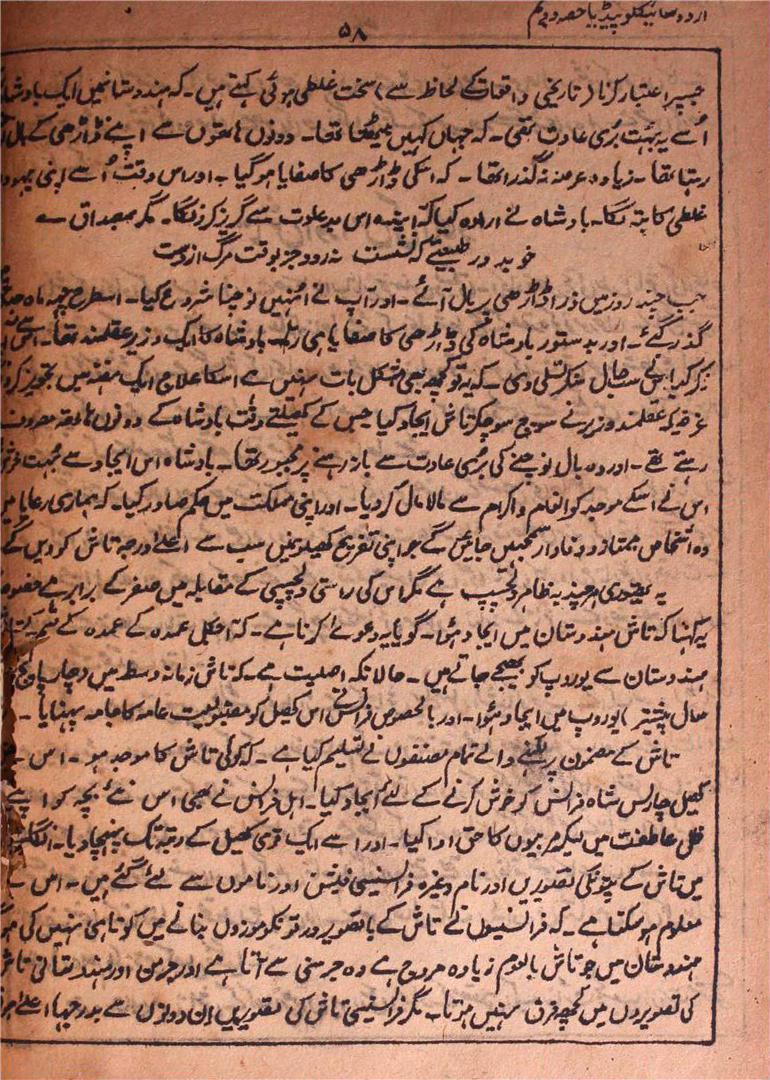 اردو سائیکلوپیڈیا حصہ دویم
۵۸
جسپر اعتبار کرنا (تاریخی واقعات کے لحاظ سے) سخت غلطی ہوگی کہتے ہیں۔ کہ ہندوستانمیں ایک بادشاہ
اُسے یہ بہت بُری عادت تھی۔ کہ جہاں کہیں بیٹھتا تھا۔ دونوں ہاتھوں سے اپنے ڈاڑھی کے بال
رہتا تھا۔ زیادہ عرصہ نہ گذرا تھا۔ کہ اسکی ڈاڑھی کا صفایا ہوگیا۔ اور اس وقت اُسے اپنی بیہودہ
غلطی کا پتہ لگا۔ بادشاہ نے ارادہ کیا کہ آیندہ اس بد عادت سے گریز کرنے لگا۔ مگر بمصداق ے
خوے بد در طبیعتے کہ نشست نہ رود جز بوقت مرگ از دست
جب چند روز میں ذرا ڈاڑھی پر بال آئے۔ اور آپ نے اُنہیں نوچنا شروع کیا۔ اسطرح چھہ ماہ
گذر گئے۔ اور بدستور بادشاہ کی ڈاڑھی کا صفایا ہی رہا۔ بادشاہ کا ایک وزیر عقلمند تھا۔ اس
ذکر کیا اُس نے سب حال سُنکر تسلی دی۔ کہ یہ تو کچھ بھی مشکل بات نہیں ہے اسکا علاج ایک ہفتہ میں تجویز
غرضیکہ عقلمند وزیر نے سوچ سوچکر تاش ایجاد کیا جس کے کھیلتے وقت بادشاہ کے دونوں ہاتھ مصروف
رہتے تھے۔ اور وہ بال نوچنے کی بُری عادت سے باز رہنے پر مجبور تھا۔ بادشاہ اس ایجاد سے بہت خوش
اس نے اسکے موجد کو انعام و اکرام سے مالا مال کر دیا۔ اور اپنی مملکت میں حکم صادر کیا۔ کہ ہماری رعایا میں
وہ اشخاص ممتاز و وفادار سمجھیں جائیں گے جو اپنی تفریح کھیلونمیں سب سے اعلےٰ درجہ تاش کو دیں گے
یہ تھیوری ہر چند بہ ظاہر دلچسپ ہے مگر اس کی راستی دلچسپی کے مقابلہ میں صفر کے برابر ہے
یہ کہنا کہ تاش ہندوستان میں ایجاد ہؤا۔ گویا یہ دعوےٰ کرنا ہے۔ کہ آجکل عمدہ کے عمدہ
ہندوستان سے یوروپ کو بھیجے جاتے ہیں۔ حالانکہ اصلیت ہے۔ کہ تاش زمانہ وسط میں (چار پانچ
سال پیشتر) یوروپ میں ایجاد ہؤا۔ اور بالخصوص فرانس نے اس کھیل کو مقبولیت عامہ کا جامہ پہنایا۔
تاش کے مضمون پر لکھنے والے تمام مصنفوں نے تسلیم کیا ہے۔ کہ کوئی تاش کا موجد ہو۔ اس
کھیل چارلس شاہ فرانس کو خوش کرنے کے لئے ایجاد کیا۔ اہل فرانس نے بھی اس نئے بچہ کو اپنے
ظل عاطفت میں لیکر مربیوں کا حق ادا کیا۔ اور اسے ایک قومی کھیل کے درجہ تک پہنچا دیا۔
میں تاش کے پتونکی تصویریں اور نام وغیرہ فرانسیسی فیشن اور ناموں سے لئے گئے ہیں۔ اس سے
معلوم ہو سکتا ہے۔ کہ فرانسیوں نے تاش کے باتصویر ورقونکو موزوں بنانے میں کوتاہی نہیں کی
ہندوستان میں جو تاش بالعموم زیادہ مروج ہے وہ جرمنی سے آتا ہے اور جرمن اور ہندوستانی تاش
کی تصویروں میں کچھ فرق نہیں ہوتا۔ مگر فرانسیسی تاش کی تصویریں ان دونوں سے بدرجہا اعلےٰ